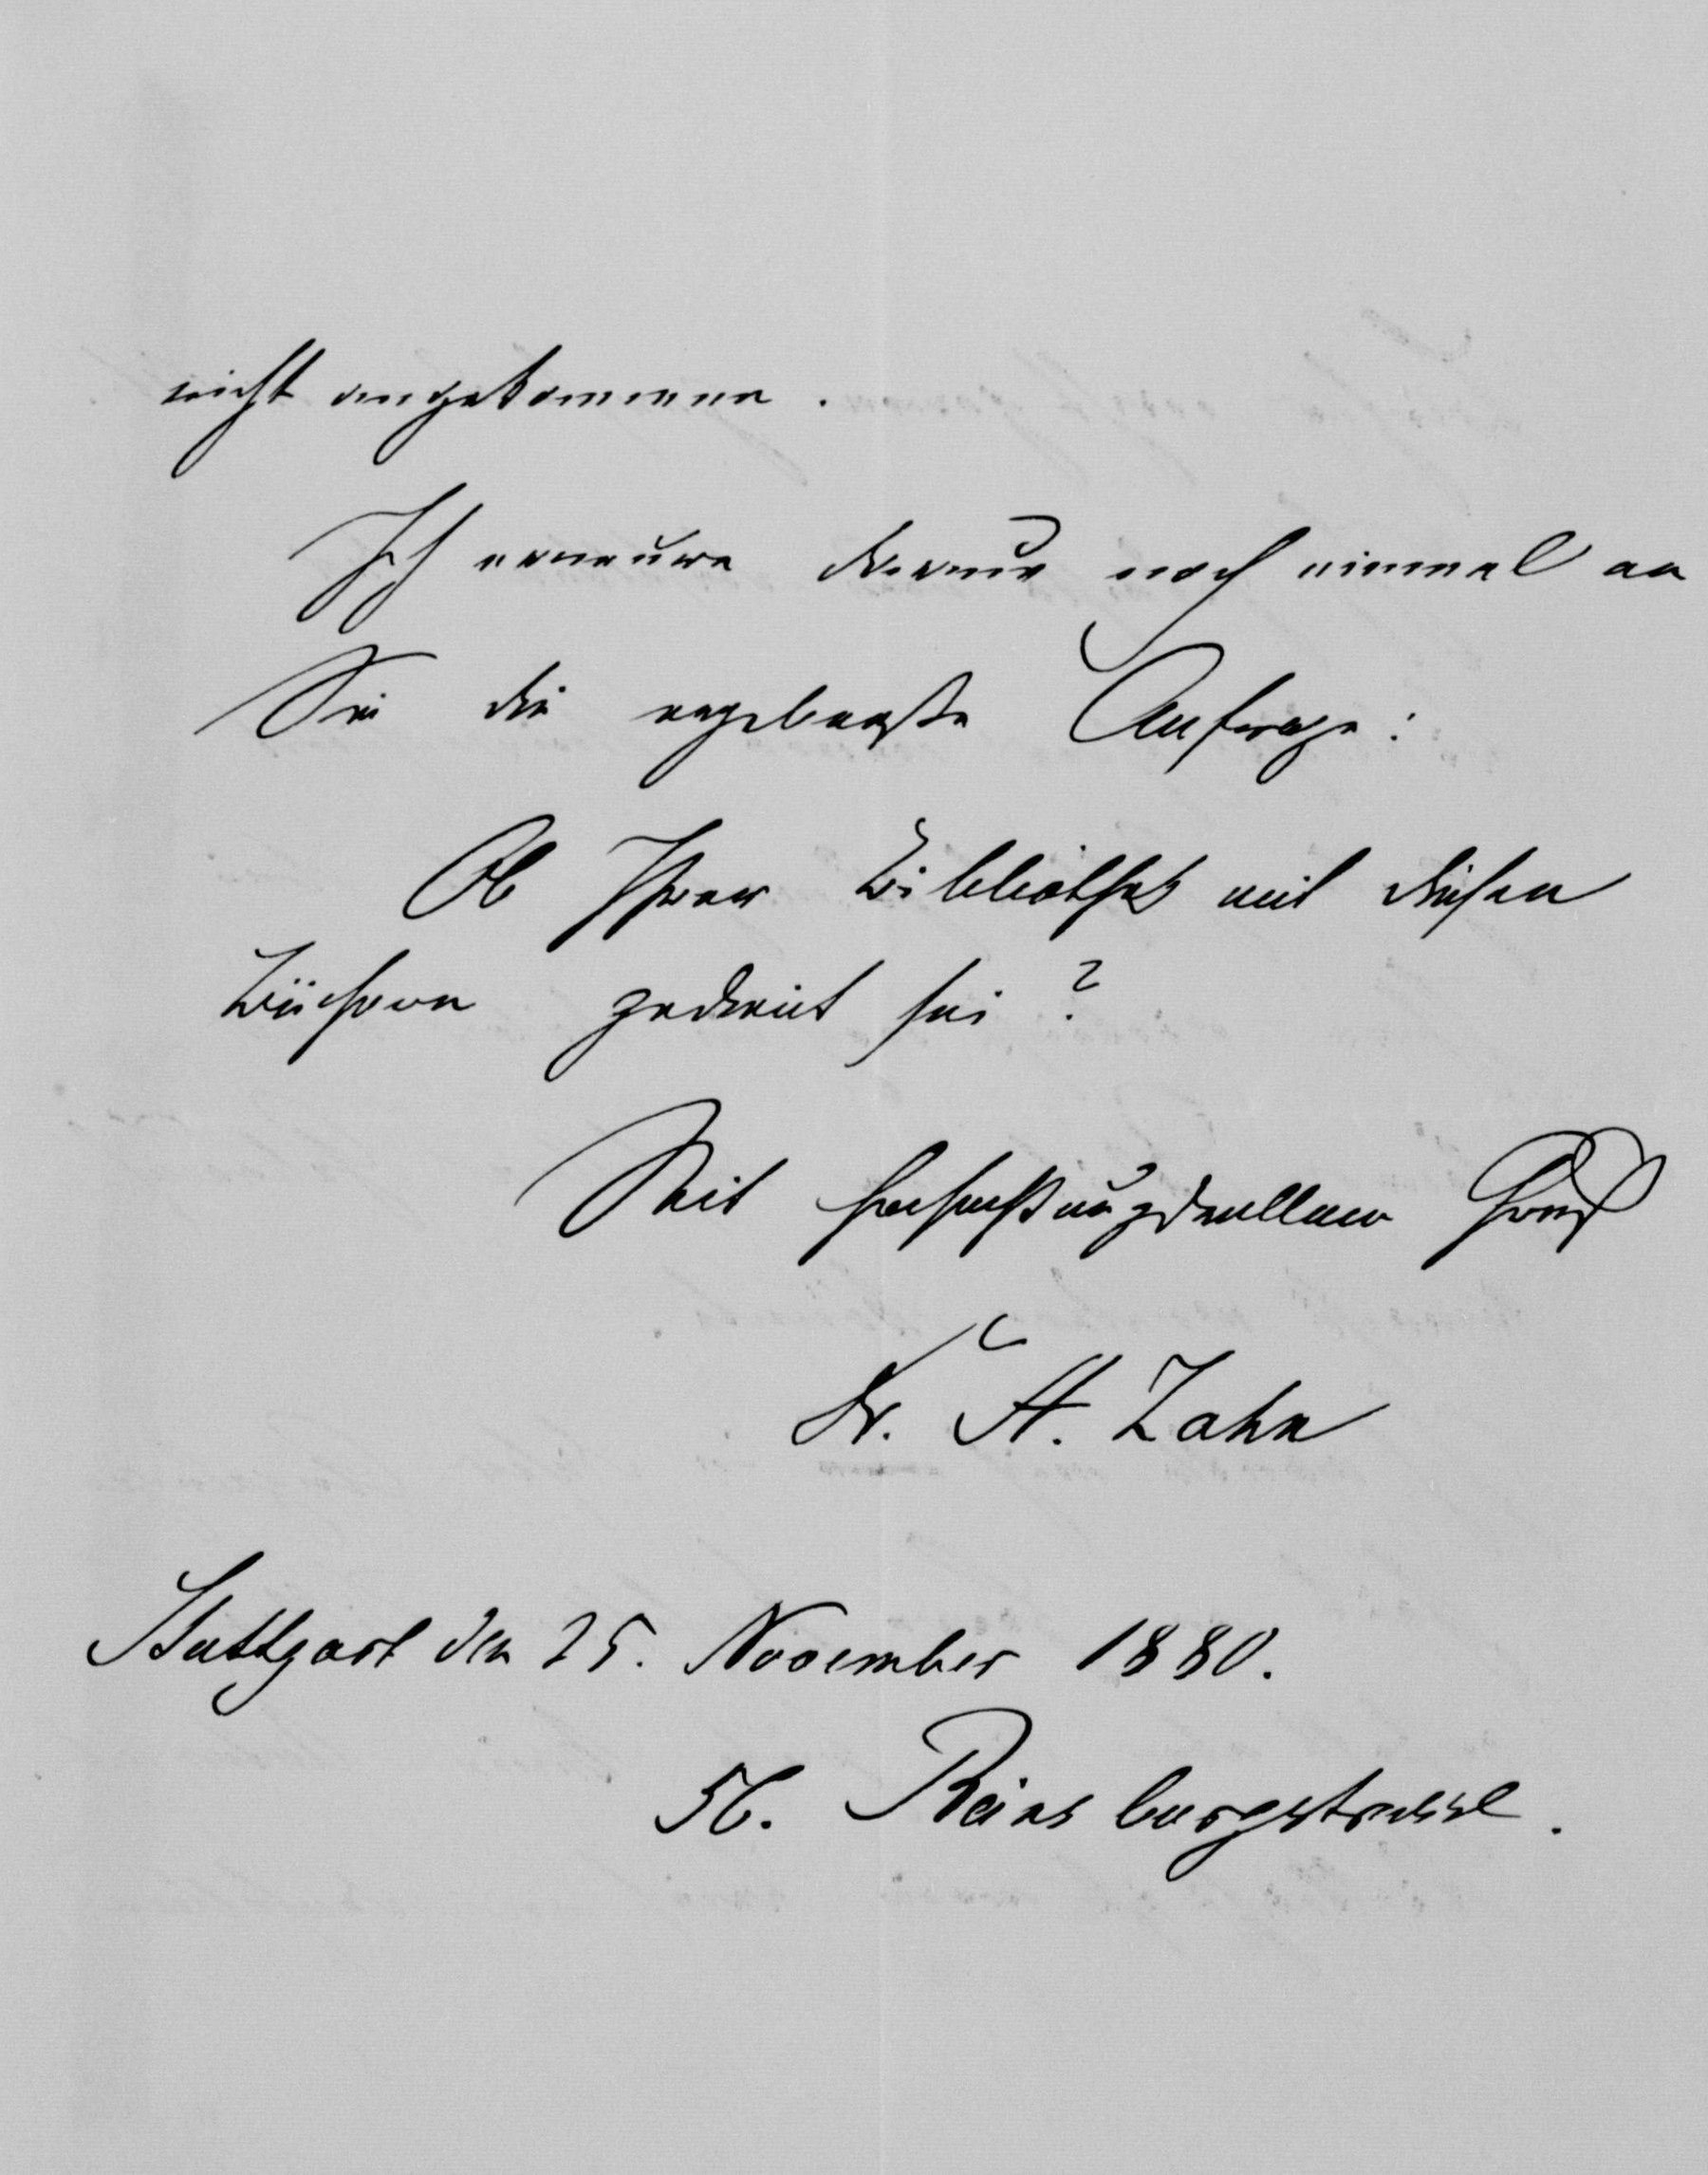 nicht angekommen.
Ich erneuere darum noch einmal an
Sie die ergebenste Anfrage:
Ob Ihrer Bibliothek mit diesen
Büchern gedient sei?
Mit hochachtungsvollem Gruß
Dr. A. Zahn
Stuttgart den 25. November 1880.
56. Reinsburgstrasse.